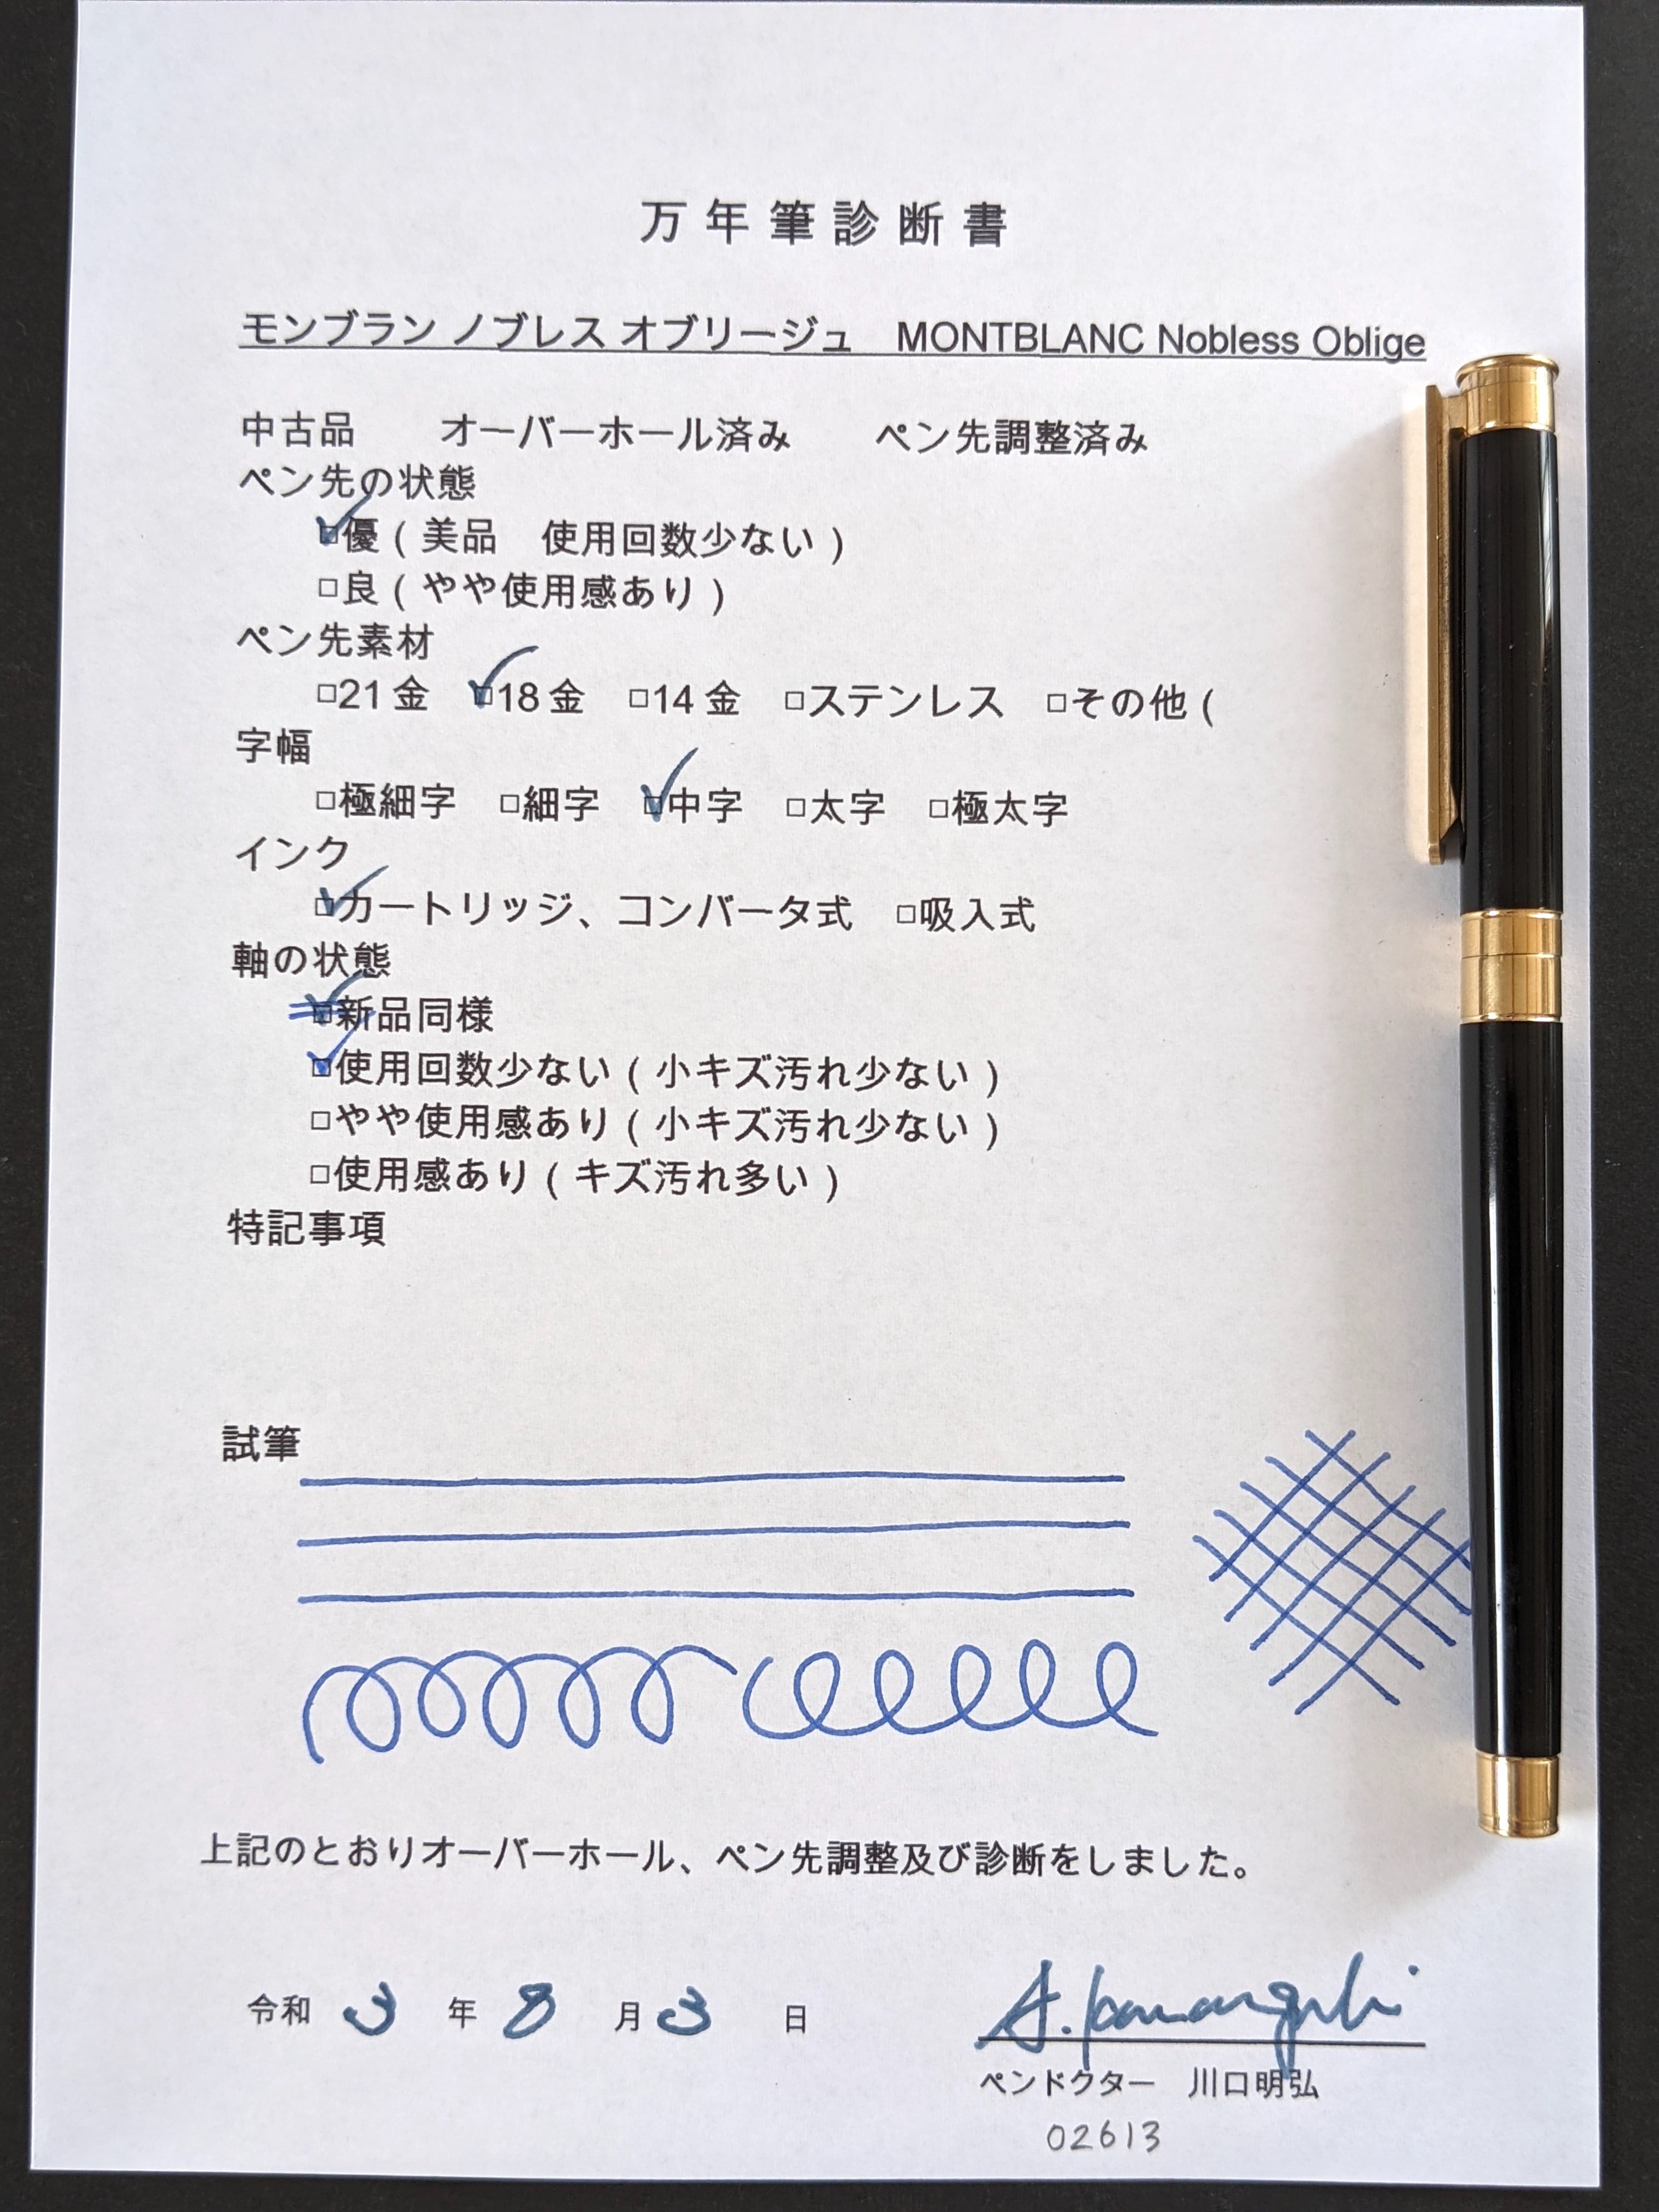 万年筆診断書
モンブラン ノブレス オブリージュ　MONTBLANC Nobless Oblige
中古品　オーバーホール済み　ペン先調整済み
ペン先の状態
☑優（美品　使用回数少ない）
□良（やや使用感あり）
ペン先素材
□21金　☑18金　□14金　□ステンレス　□その他（
字幅
□極細字　□細字　☑中字　□太字　□極太字
インク
☑カートリッジ、コンバータ式　□吸入式
軸の状態
☑新品同様
☑使用回数少ない（小キズ汚れ少ない）
□やや使用感あり（小キズ汚れ少ない）
□使用感あり（キズ汚れ多い）
特記事項
試筆
上記のとおりオーバーホール、ペン先調整及び診断をしました。
令和 3 年 8 月 3 日
A. Kawaguchi
ペンドクター　川口明弘
02613